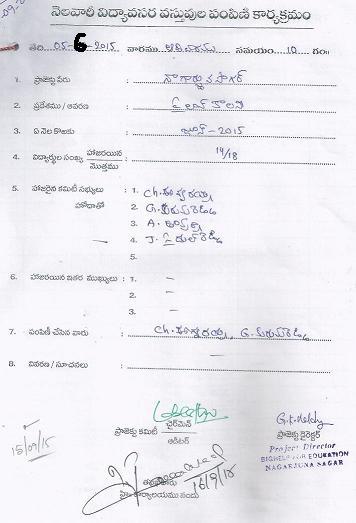 నెలవారీ విద్యావసర వస్తువుల పంపిణి కార్యక్రమం
తేది 05-6-2015 వారము ఆదివారము సమయం 10 గం॥
1. ప్రాజెక్టు పేరు నాగార్జున సాగర్
2. ప్రదేశము / ఆవరణ పైలాన్ కాలని
3. ఏ నెల కొఱకు జూన్-2015
4. విద్యార్థుల సంఖ్య హాజరయిన / మొత్తము 14/18
5. హాజరైన కమిటీ సభ్యులు : 1. Ch. ఈశ్వరయ్య
హోదాతో 2. G.
3. A.
4. J.
5.
6. హాజరయిన ఇతర ముఖ్యులు : 1. –
2. –
3. –
7. పంపిణి చేసిన వారు Ch. ఈశ్వరయ్య, G.
8. వివరణ / సూచనలు
ప్రాజెక్టు కమిటీ చైర్‌మెన్ / ఆడిటర్
G.K. Reddy
ప్రాజెక్టు డైరెక్టర్
Project Director
BIGHELP FOR EDUCATION
NAGARJUNA SAGAR
15/09/15
16/9/15